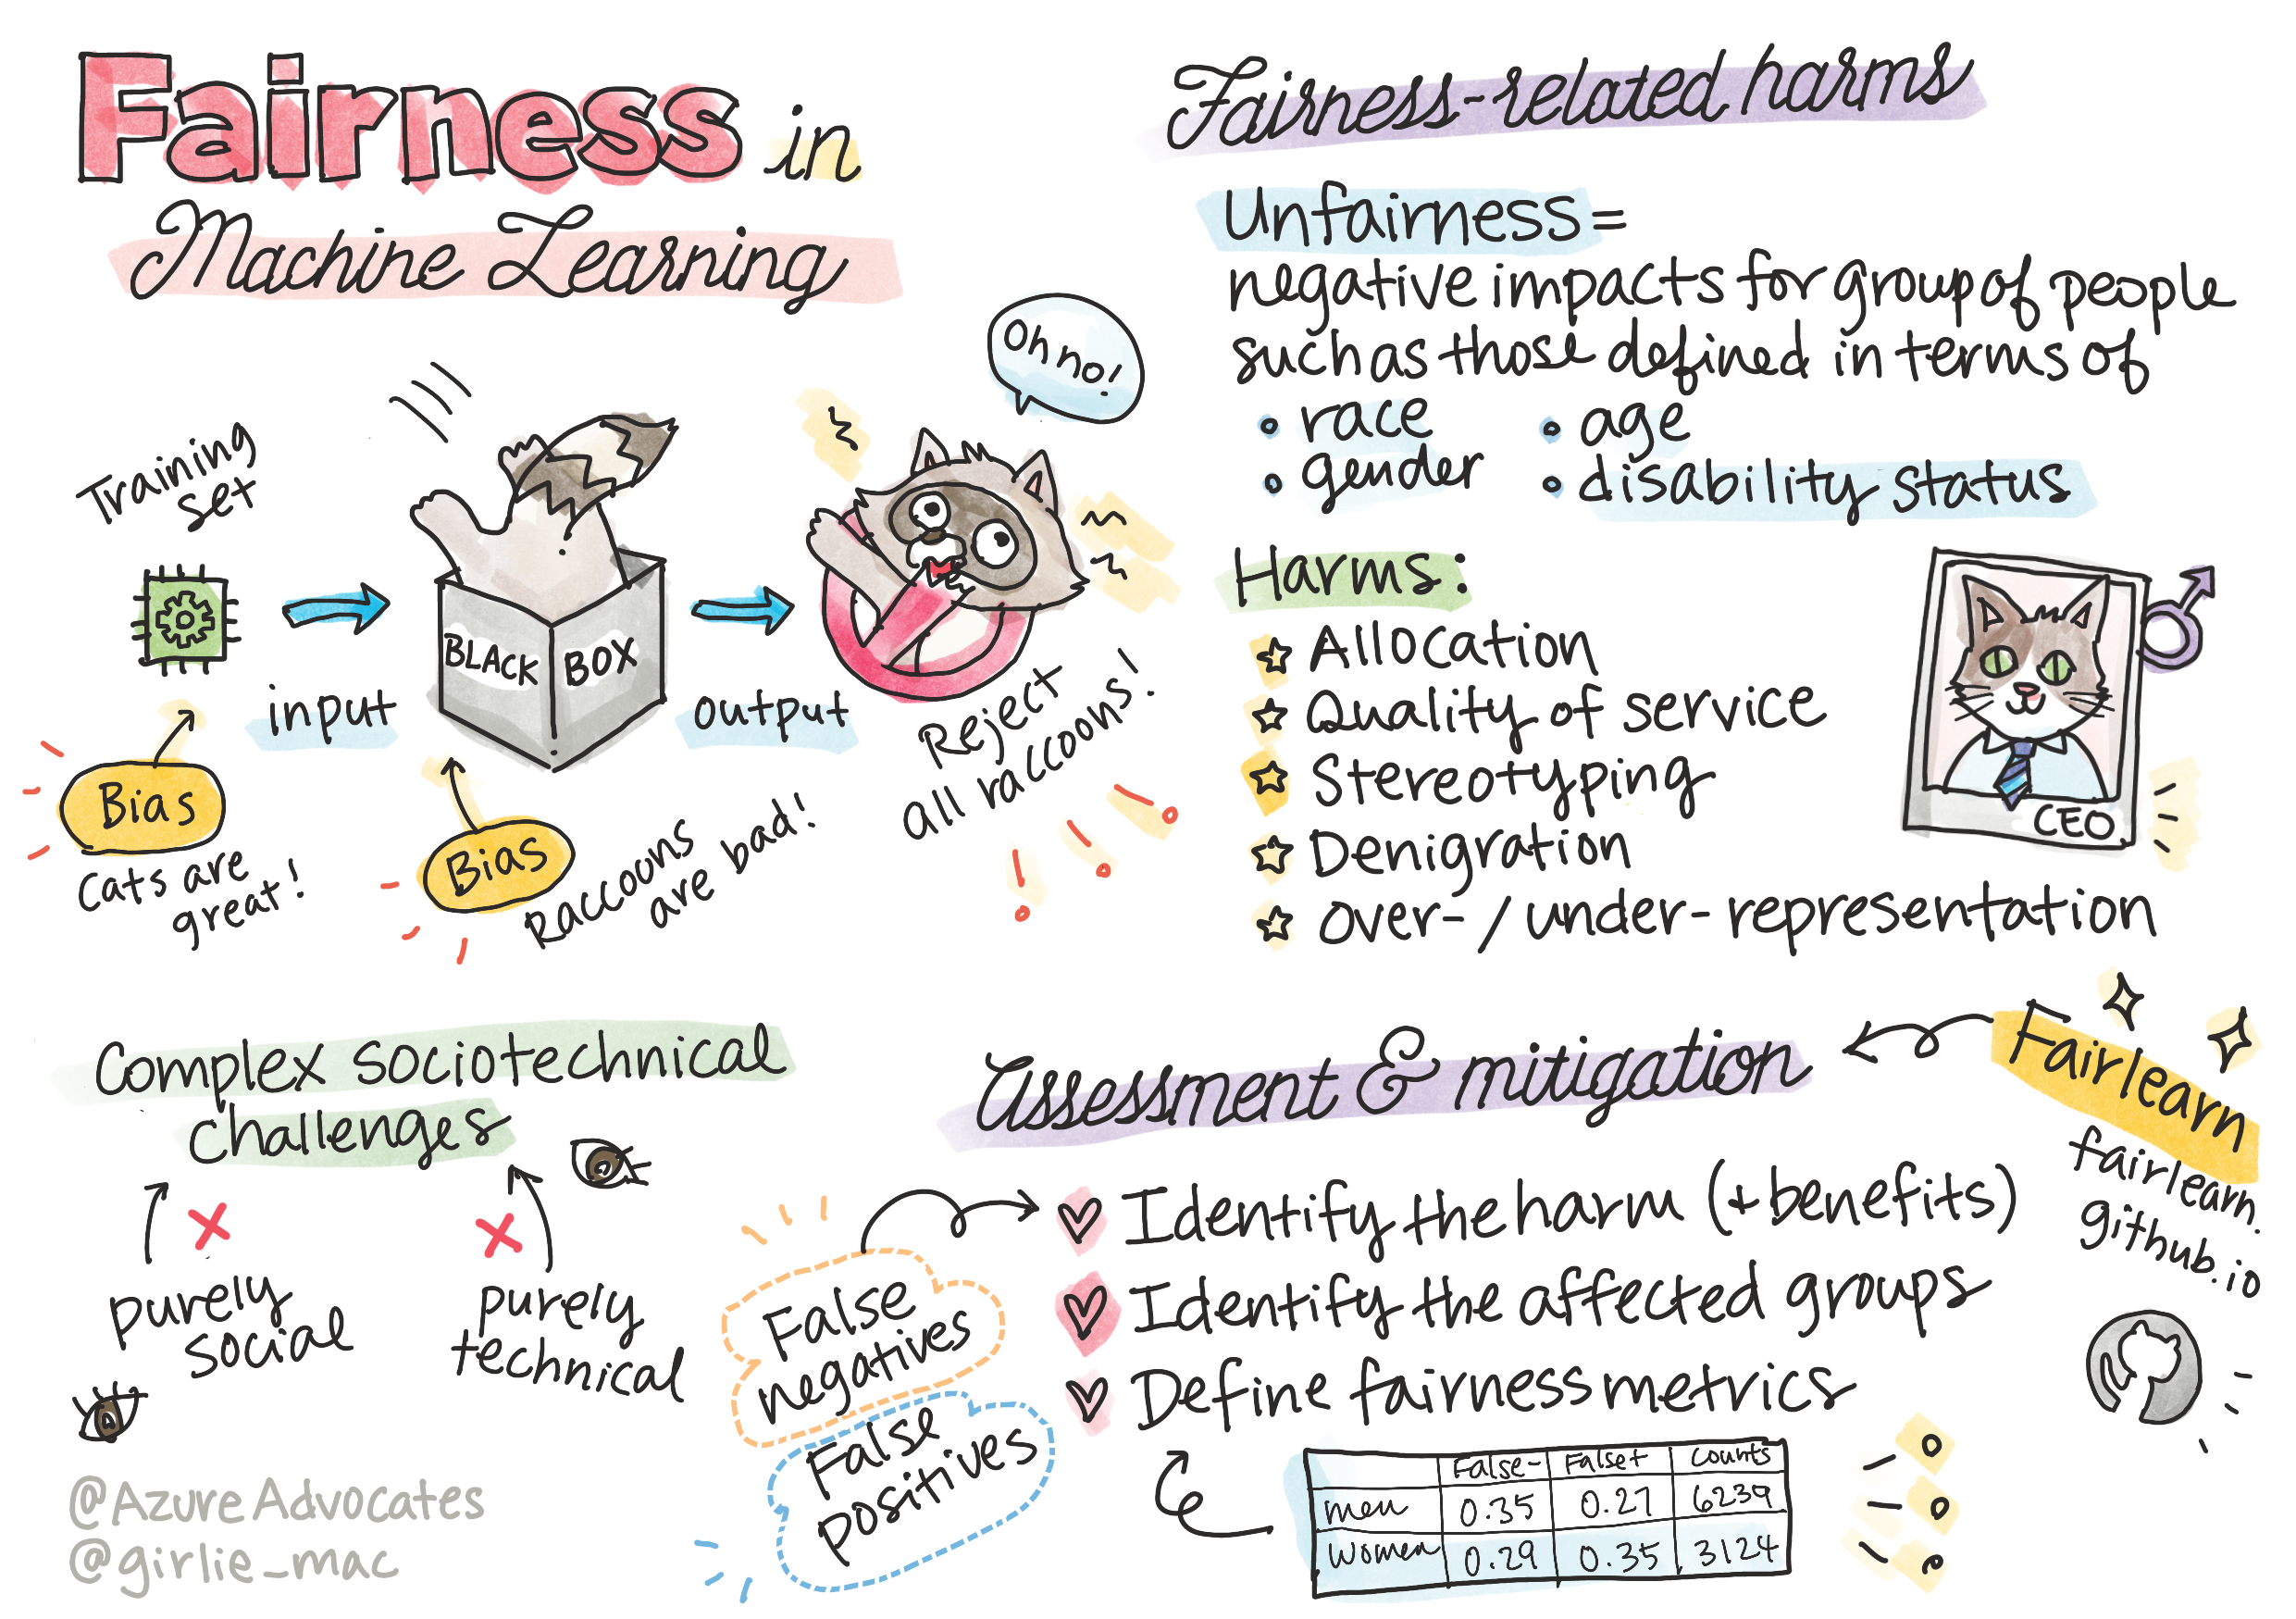 Fairness in
Machine Learning
Oh no!
Training
set
input
BLACK BOX
output
Reject
all raccoons!
Bias
Cats are
great!
Bias
Raccoons
are bad!
Fairness-related harms
Unfairness =
negative impacts for group of people
such as those defined in terms of
• race
• age
• gender
• disability status
Harms:
☆ Allocation
☆ Quality of service
☆ Stereotyping
☆ Denigration
☆ over- / under- representation
CEO
Complex sociotechnical
challenges
purely
social
purely
technical
@AzureAdvocates
@girlie_mac
Assessment & mitigation
Fairlearn
fairlearn.
github.io
False
negatives
False
positives
Identify the harm (+ benefits)
Identify the affected groups
Define fairness metrics
False- False+ Counts
men 0.35 0.27 6239
Women 0.29 0.35 3124